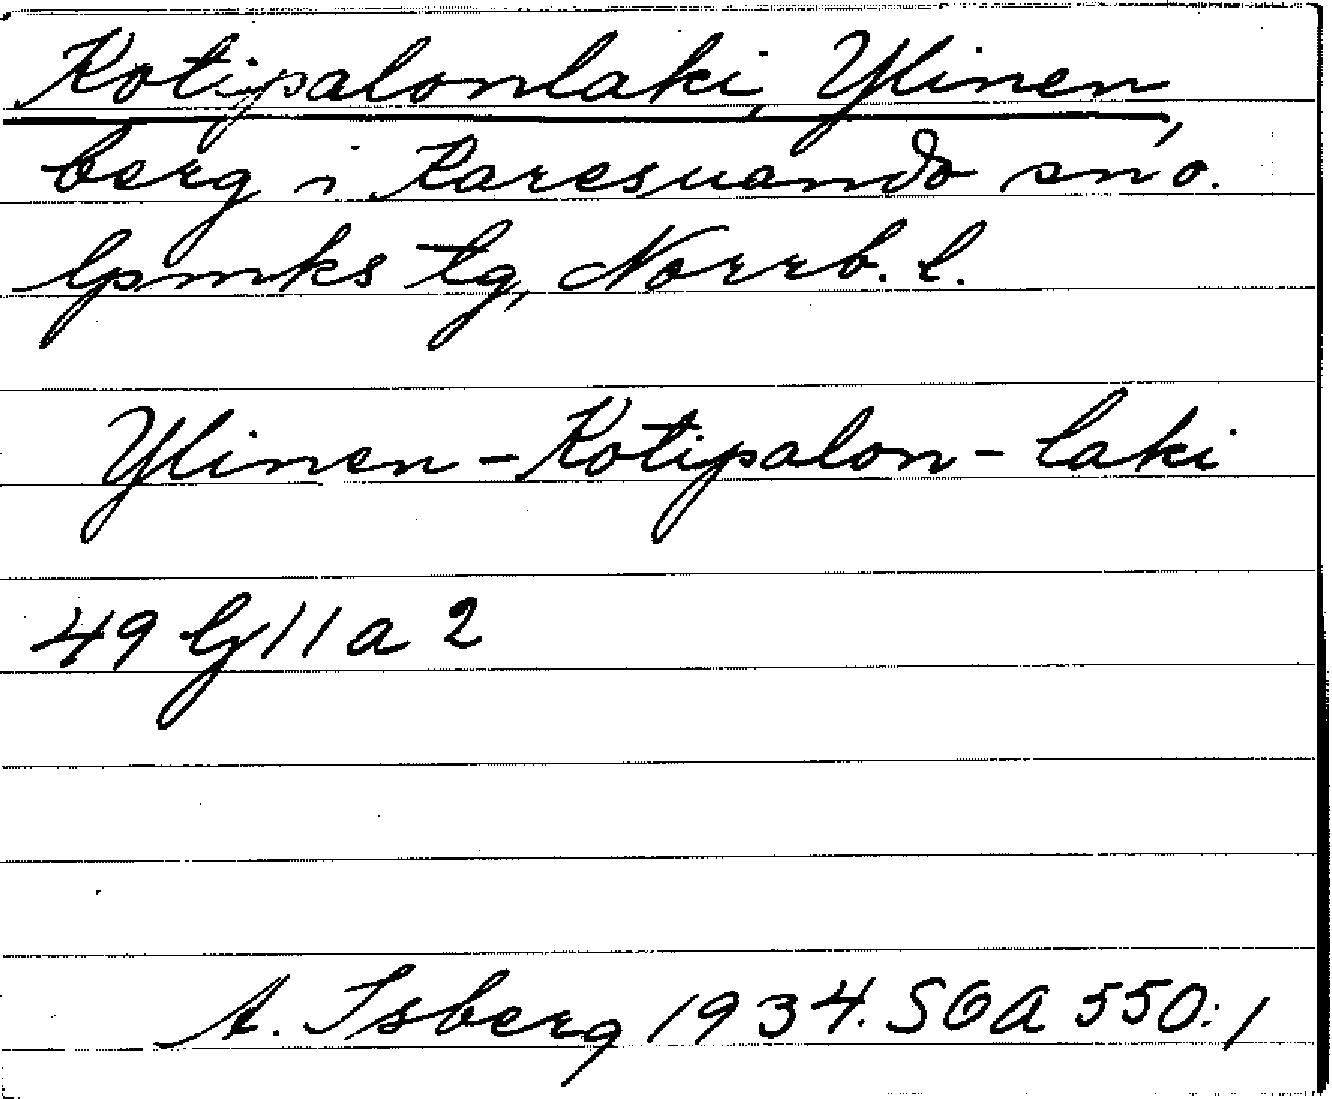 Kotipalonlaki, Ylinen,
berg i Karesuando sn o.
lpmks tg, Norrb. l.
Ylinen-Kotipalon-laki
49 G 11 a 2
A. Isberg 1934. SOA 550:1